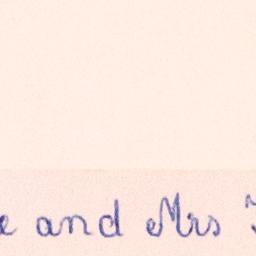 and Mrs